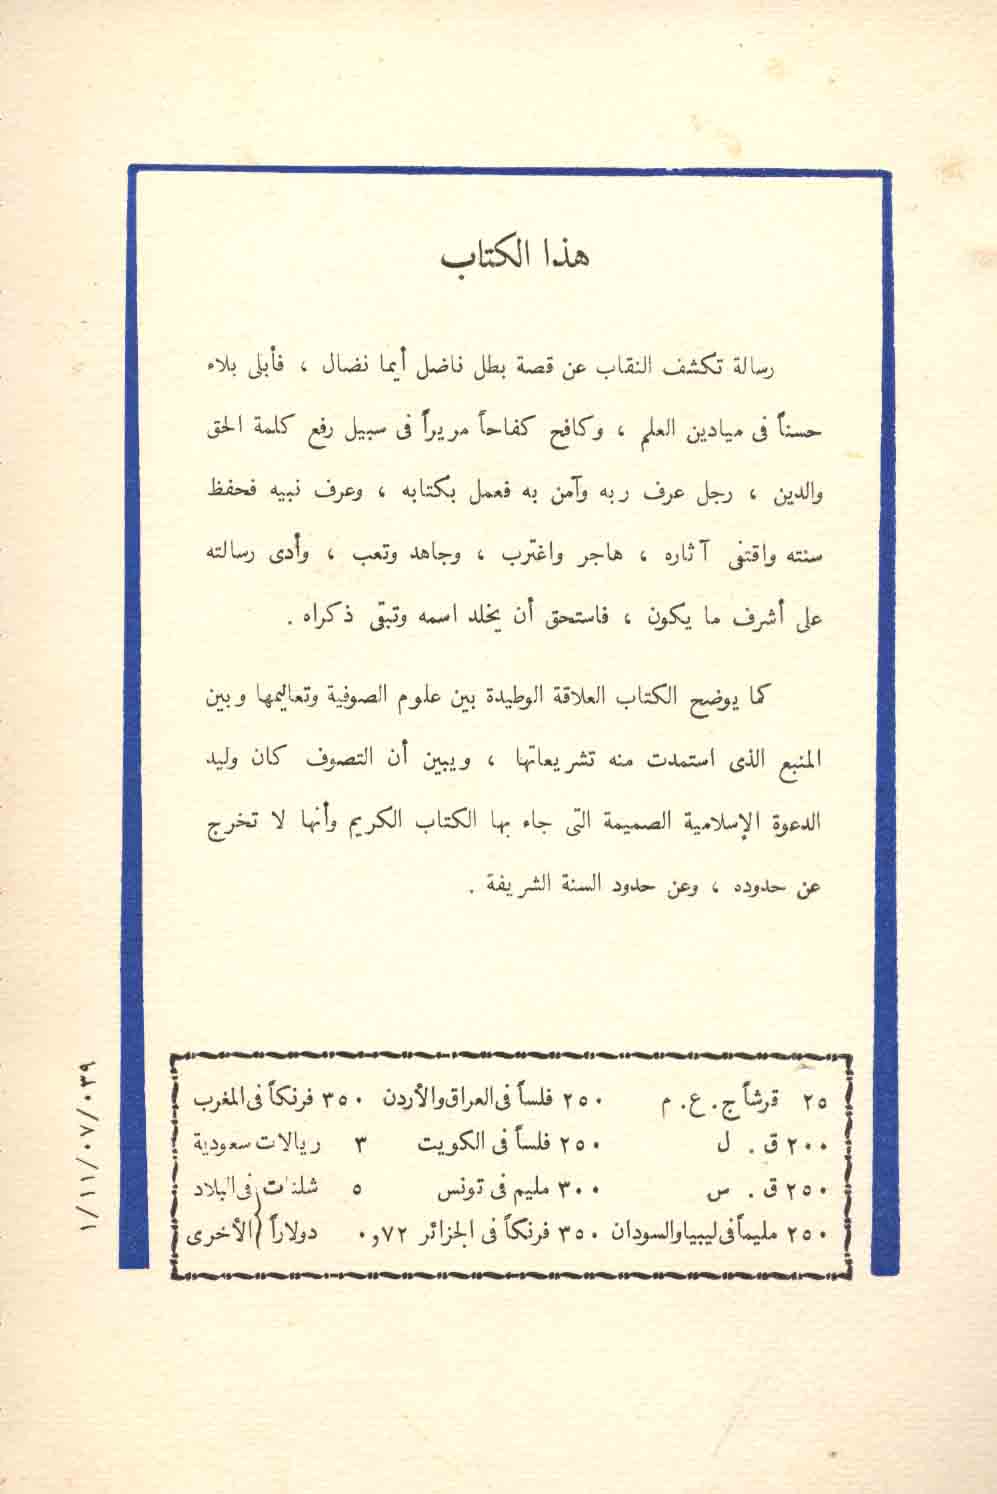 هذا الكتاب
رسالة تكشف النقاب عن قصة بطل ناضل أيما نضال ، فأبلى بلاء
حسناً فى ميادين العلم ، وكافح كفاحاً مريراً فى سبيل رفع كلمة الحق
والدين ، رجل عرف ربه وآمن به فعمل بكتابه ، وعرف نبيه فحفظ
سنته واقتفى آثاره ، هاجر واغترب ، وجاهد وتعب ، وأدى رسالته
على أشرف ما يكون ، فاستحق أن يخلد اسمه وتبقى ذكراه .
كما يوضح الكتاب العلاقة الوطيدة بين علوم الصوفية وتعاليمها وبين
المنبع الذى استمدت منه تشريعاتها ، ويبين أن التصوف كان وليد
الدعوة الإسلامية الصميمة التى جاء بها الكتاب الكريم وأنها لا تخرج
عن حدوده ، وعن حدود السنة الشريفة .
٢٥ قرشاً ج . ع . م ٢٥٠ فلساً فى العراق والأردن ٣٥٠ فرنكاً فى المغرب
٢٠٠ ق . ل ٢٥٠ فلساً فى الكويت ٣ ريالات سعودية
٢٥٠ ق . س ٣٠٠ مليم فى تونس ٥ شلنات فى البلاد
٢٥٠ مليماً فى ليبيا والسودان ٣٥٠ فرنكاً فى الجزائر ٠,٧٢ دولاراً الأخرى
١/١١/٠٧/٠٣٩